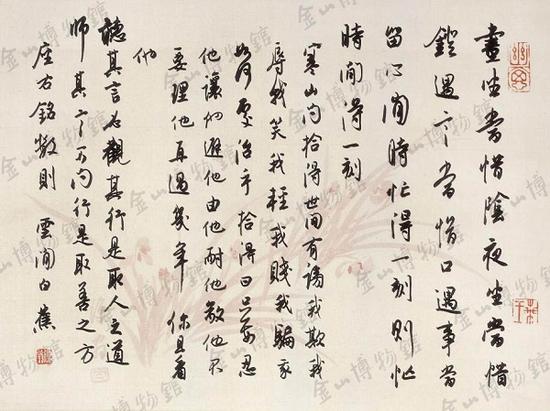 昼坐當惜陰夜坐當惜
鐙遇言當惜口遇事當
留心閒時忙得一刻則忙
時閒得一刻
寒山问拾得世间有谤我欺我
辱我笑我轻我贱我骗我
如何处治乎拾得曰只要忍
他让他避他由他耐他敬他不
要理他再过几年你且看
他
聽其言必觀其行是取人之道
師其言不问行是取善之方
座右銘數則 雲间白蕉
金山博物館